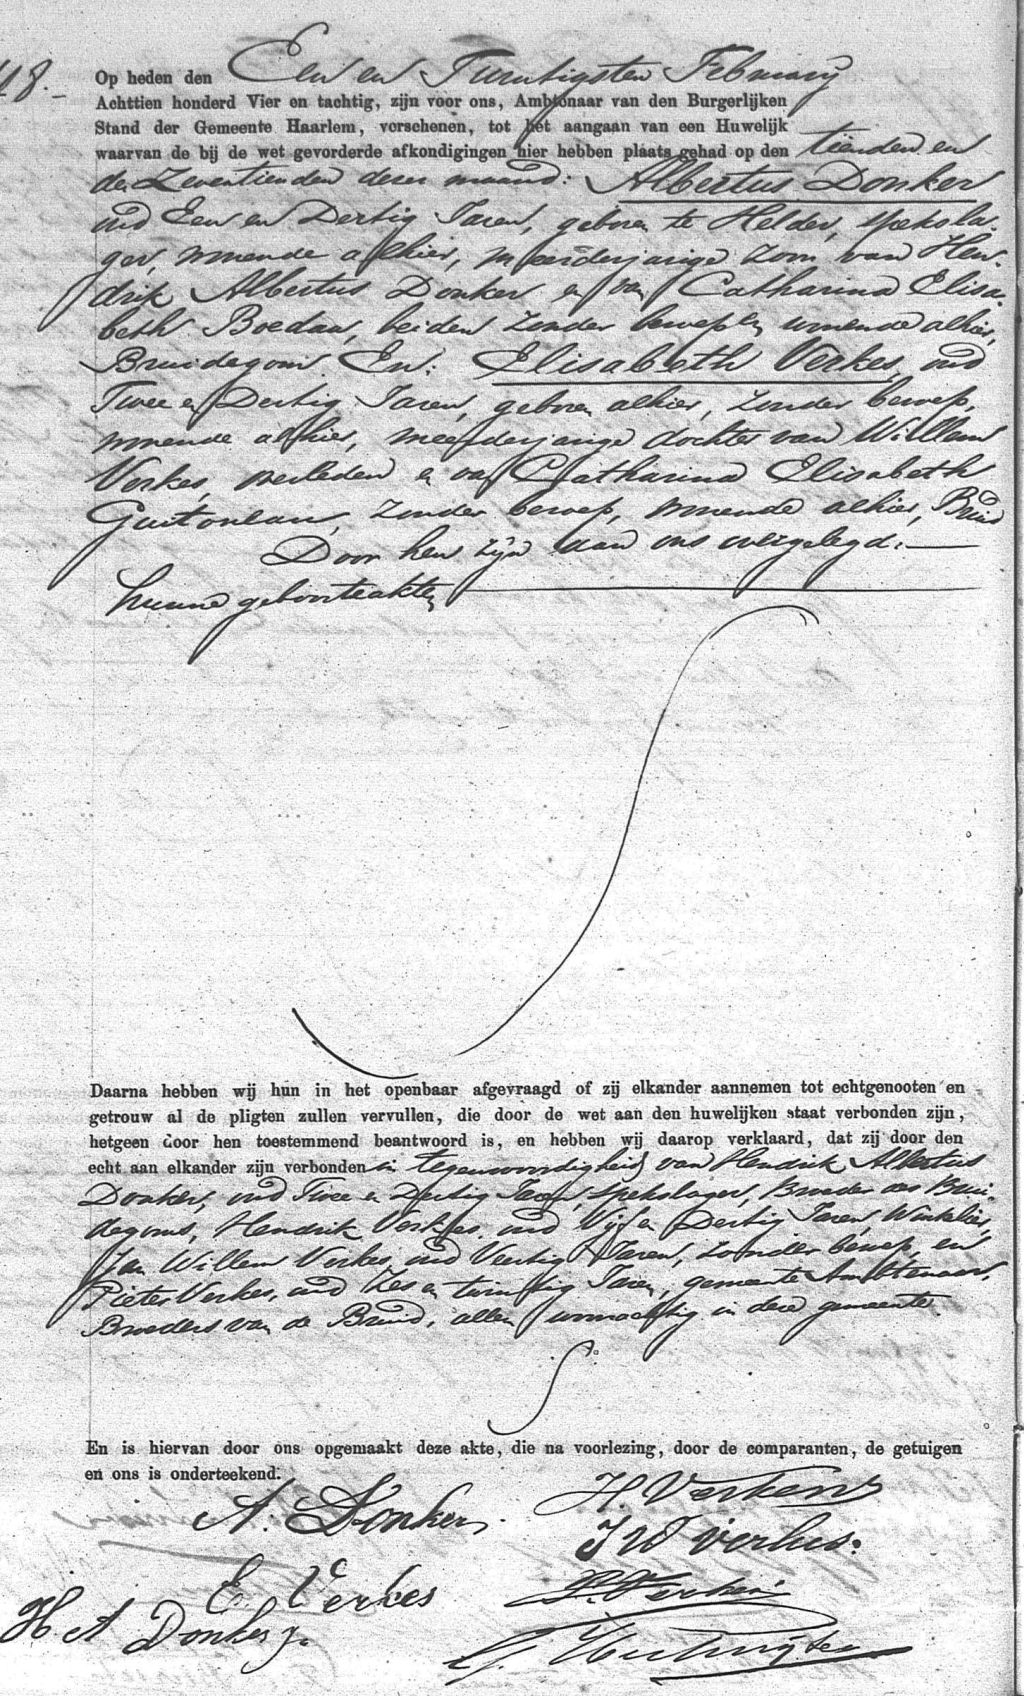 48.
Op heden den Een en Twintigsten February
Achttien honderd Vier en tachtig, zijn voor ons, Ambtenaar van den Burgerlijken
Stand der Gemeente Haarlem, verschenen, tot het aangaan van een Huwelijk
waarvan de bij de wet gevorderde afkondigingen hier hebben plaats gehad op den tienden en
den Zeventienden dezer maand: Albertus Donker
oud Een en Dertig Jaren, geboren te Helder, speksla-
ger, wonende alhier, meerderjarige zoon van Hen-
drik Albertus Donker en van Catharina Elisa-
beth Boedan, beiden zonder beroep en wonende alhier,
Bruidegom. En: Elisabeth Verkes, oud
Twee en Dertig Jaren, geboren alhier, zonder beroep,
wonende alhier, meerderjarige dochter van Willem
Verkes, overleden en van Catharina Elisabeth
zonder beroep, wonende alhier, Bruid
Door hen zijn aan ons overgelegd:
hunne geboorteakten
Daarna hebben wij hun in het openbaar afgevraagd of zij elkander aannemen tot echtgenooten en
getrouw al de pligten zullen vervullen, die door de wet aan den huwelijken staat verbonden zijn,
hetgeen door hen toestemmend beantwoord is, en hebben wij daarop verklaard, dat zij door den
echt aan elkander zijn verbonden in tegenwoordigheid van Hendrik Albertus
Donker, oud Twee en Dertig Jaren, spekslager, Broeder des Brui-
degoms, Hendrik Verkes, oud Vijf en Dertig Jaren, Winkelier,
Jan Willem Verkes, oud Veertig Jaren, zonder beroep, en
Pieter Verkes, oud Zes en twintig Jaren, gemeente Ambtenaar,
Broeders van de Bruid, allen woonachtig in deze gemeente.
En is hiervan door ons opgemaakt deze akte, die na voorlezing, door de comparanten, de getuigen
en ons is onderteekend.
A. Donker.
H. Verkens
J W Verkes.
E. Verkes
P. Verkes
H. A Donker jr.